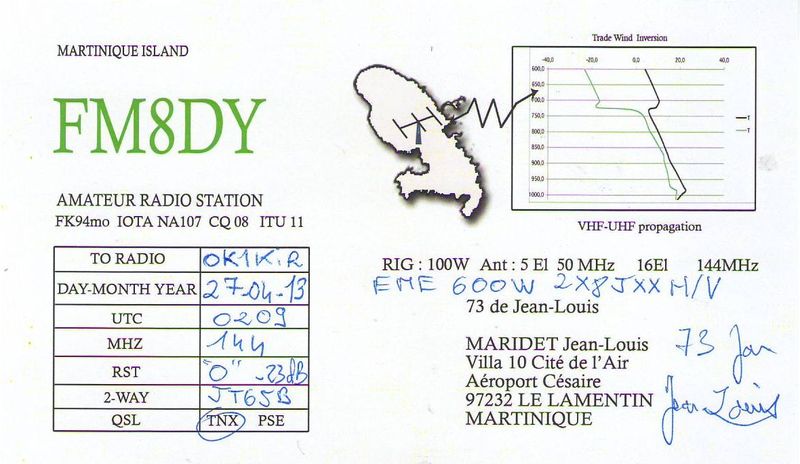 MARTINIQUE ISLAND
FM8DY
AMATEUR RADIO STATION
FK94mo IOTA NA107 CQ 08 ITU 11
Trade Wind Inversion
-40,0 -20,0 0,0 20,0 40,0
600,0
650,0
700,0
750,0
800,0
850,0
900,0
950,0
1000,0
T
T
VHF-UHF propagation
TO RADIO OK1KiR
DAY-MONTH YEAR 27-04-13
UTC 0209
MHZ 144
RST "O" -23dB
2-WAY JT65B
QSL TNX PSE
RIG : 100W Ant : 5 El 50 MHz 16El 144MHz
EME 600W 2X8JXX H/V
73 de Jean-Louis
MARIDET Jean-Louis
Villa 10 Cité de l'Air
Aéroport Césaire
97232 LE LAMENTIN
MARTINIQUE
73 from
Jean-Louis